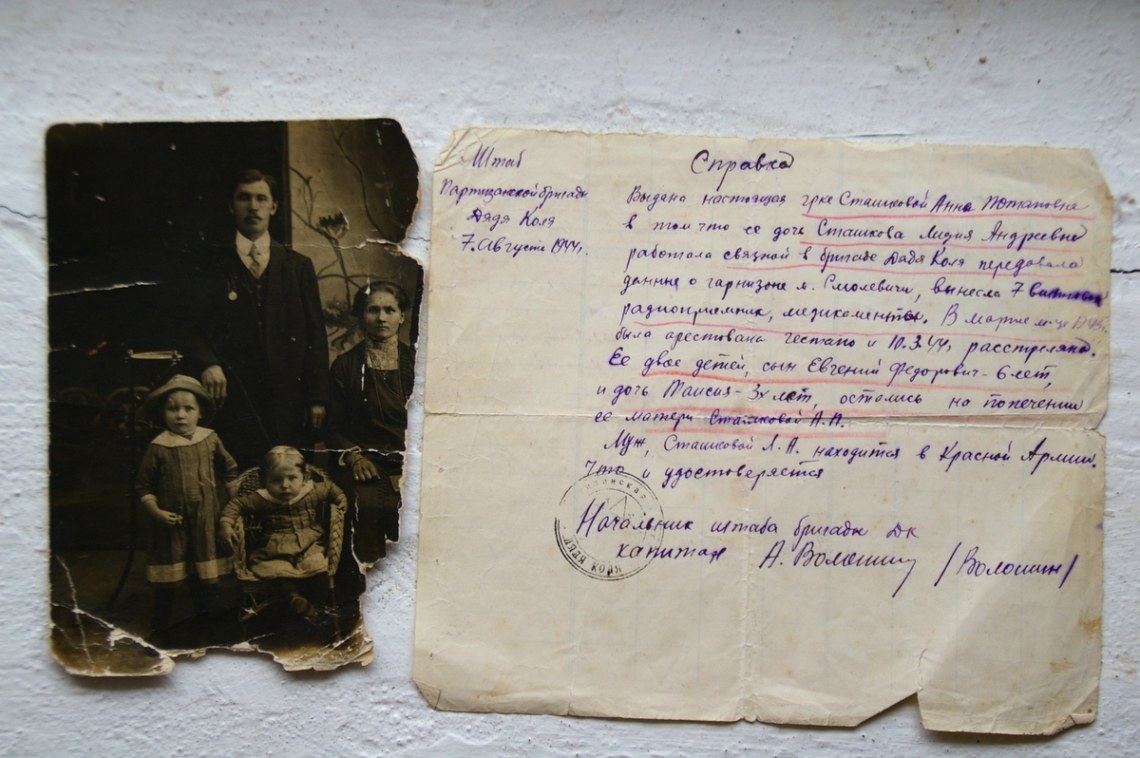 Штаб
Партизанской бригады
Дядя Коля
7. Августа 1944г.
Справка
Выдана настоящая гр-ке Сташковой Анне Потаповне
в том что ее дочь Сташкова Лидия Андреевна
работала связной в бригаде Дядя Коля передавала
данные о гарнизоне м. Смолевичи, вынесла 7 винтовок
радиоприемник, медикаменты. В марте м-це
была арестована гестапо и 10.3.44г расстреляна.
Ее двое детей, сын Евгений Федорович - 6 лет,
и дочь Таисия - 3х лет, остались на попечении
ее матери Сташковой А.П.
Муж, Сташковой Л.А. находится в Красной Армии.
Что и удостоверяется
Начальник штаба бригады ДК
капитан А. Волошин / Волошин /
ДЯДЯ КОЛЯ